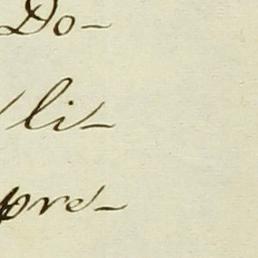 Do-
li-
pre-